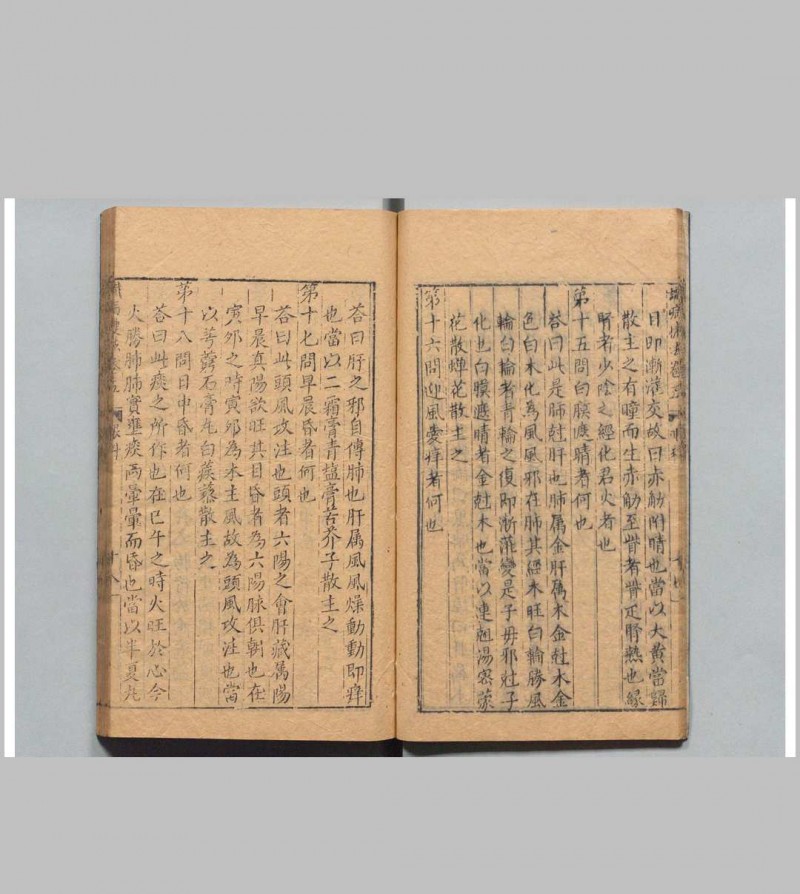 日即漸灌交故曰赤觔附睛也當以大黃當歸
散主之有瞳而生赤觔至眥者眥疋肝熱也緣
腎者少陰之經化君火者也
第十五問白膜遮睛者何也
荅曰此是肺尅肝也肺属金肝属木金尅木金
色白木化為風風邪在肺其經木旺白輪勝風
輪白輪者青輪之復即漸灌變是子母邪尅子
化也白膜遮睛者金尅木也當以連翹湯密蒙
花散蟬花散主之
第十六問迎風憂痒者何也
荅曰肝之邪自傳肺也肝属風風燥動動即痒
也當以二霜膏青盐膏苦芥子散主之
第十七問早晨昏者何也
荅曰此頭風攻注也頭者六陽之會肝藏属陽
早晨真陽欲旺其目昏者為六陽脉俱朝也在
寅夘之時寅夘為木主風故為頭風攻注也當
以芎藭石膏丸白蒺藜散主之
第十八問日中昏者何也
荅曰此痰之所作也在巳午之時火旺於心今
火勝肺肺實壅痰而暈暈而昏也當以半夏丸
十八